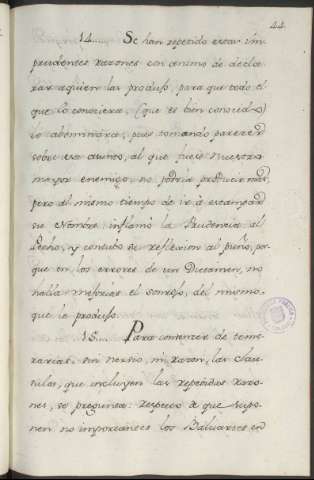 44
14..... Se han repetido estas im
prudentes razones con animo de decla
rar aquien las produjo, para que todo el
que lo conociera, (que es bien conocido)
lo abominara, pues tomando parecer
sobre ese asunto, al que fuese nuestro
mayor enemigo, no podria producir mas,
pero al mismo tiempo de ir à estampar
su Nombre inflamó la Prudencia el
Pecho, y contubo la reflexion al puño, por
que en los errores de un Dictamen, no
halla mejorias el sonrojo, del mismo
que le produjo.
15.... Para convencer de teme
rarias, sin nervio, ni razon, las Clau
sulas, que incluyen las repetidas razo
nes, se pregunta: respecto à que supo
nen no importantes los Baluartes en